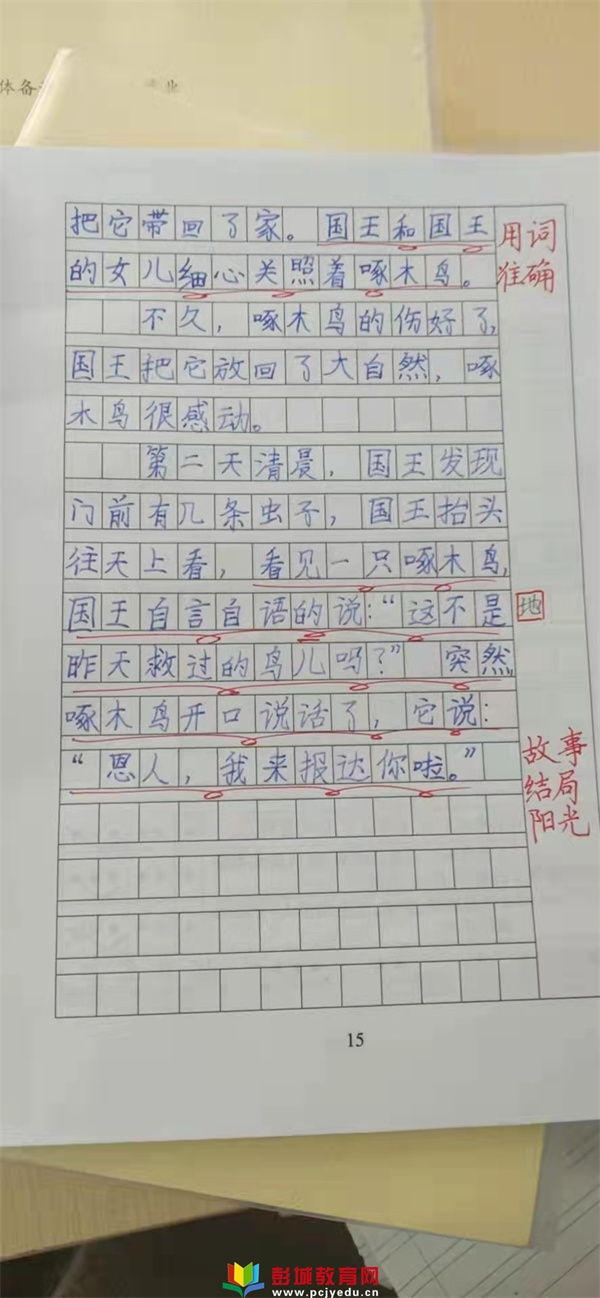 体备
把它带回了家。国王和国王
用词
的女儿细心关照着啄木鸟。
准确
不久，啄木鸟的伤好了，
国王把它放回了大自然，啄
木鸟很感动。
第二天清晨，国王发现
门前有几条虫子，国王抬头
往天上看，看见一只啄木鸟，
国王自言自语的说：“这不是
地
昨天救过的鸟儿吗？”突然，
啄木鸟开口说话了，它说：
“恩人，我来报达你啦。”
故事
结局
阳光
15
彭城教育网
www.pcjyedu.cn